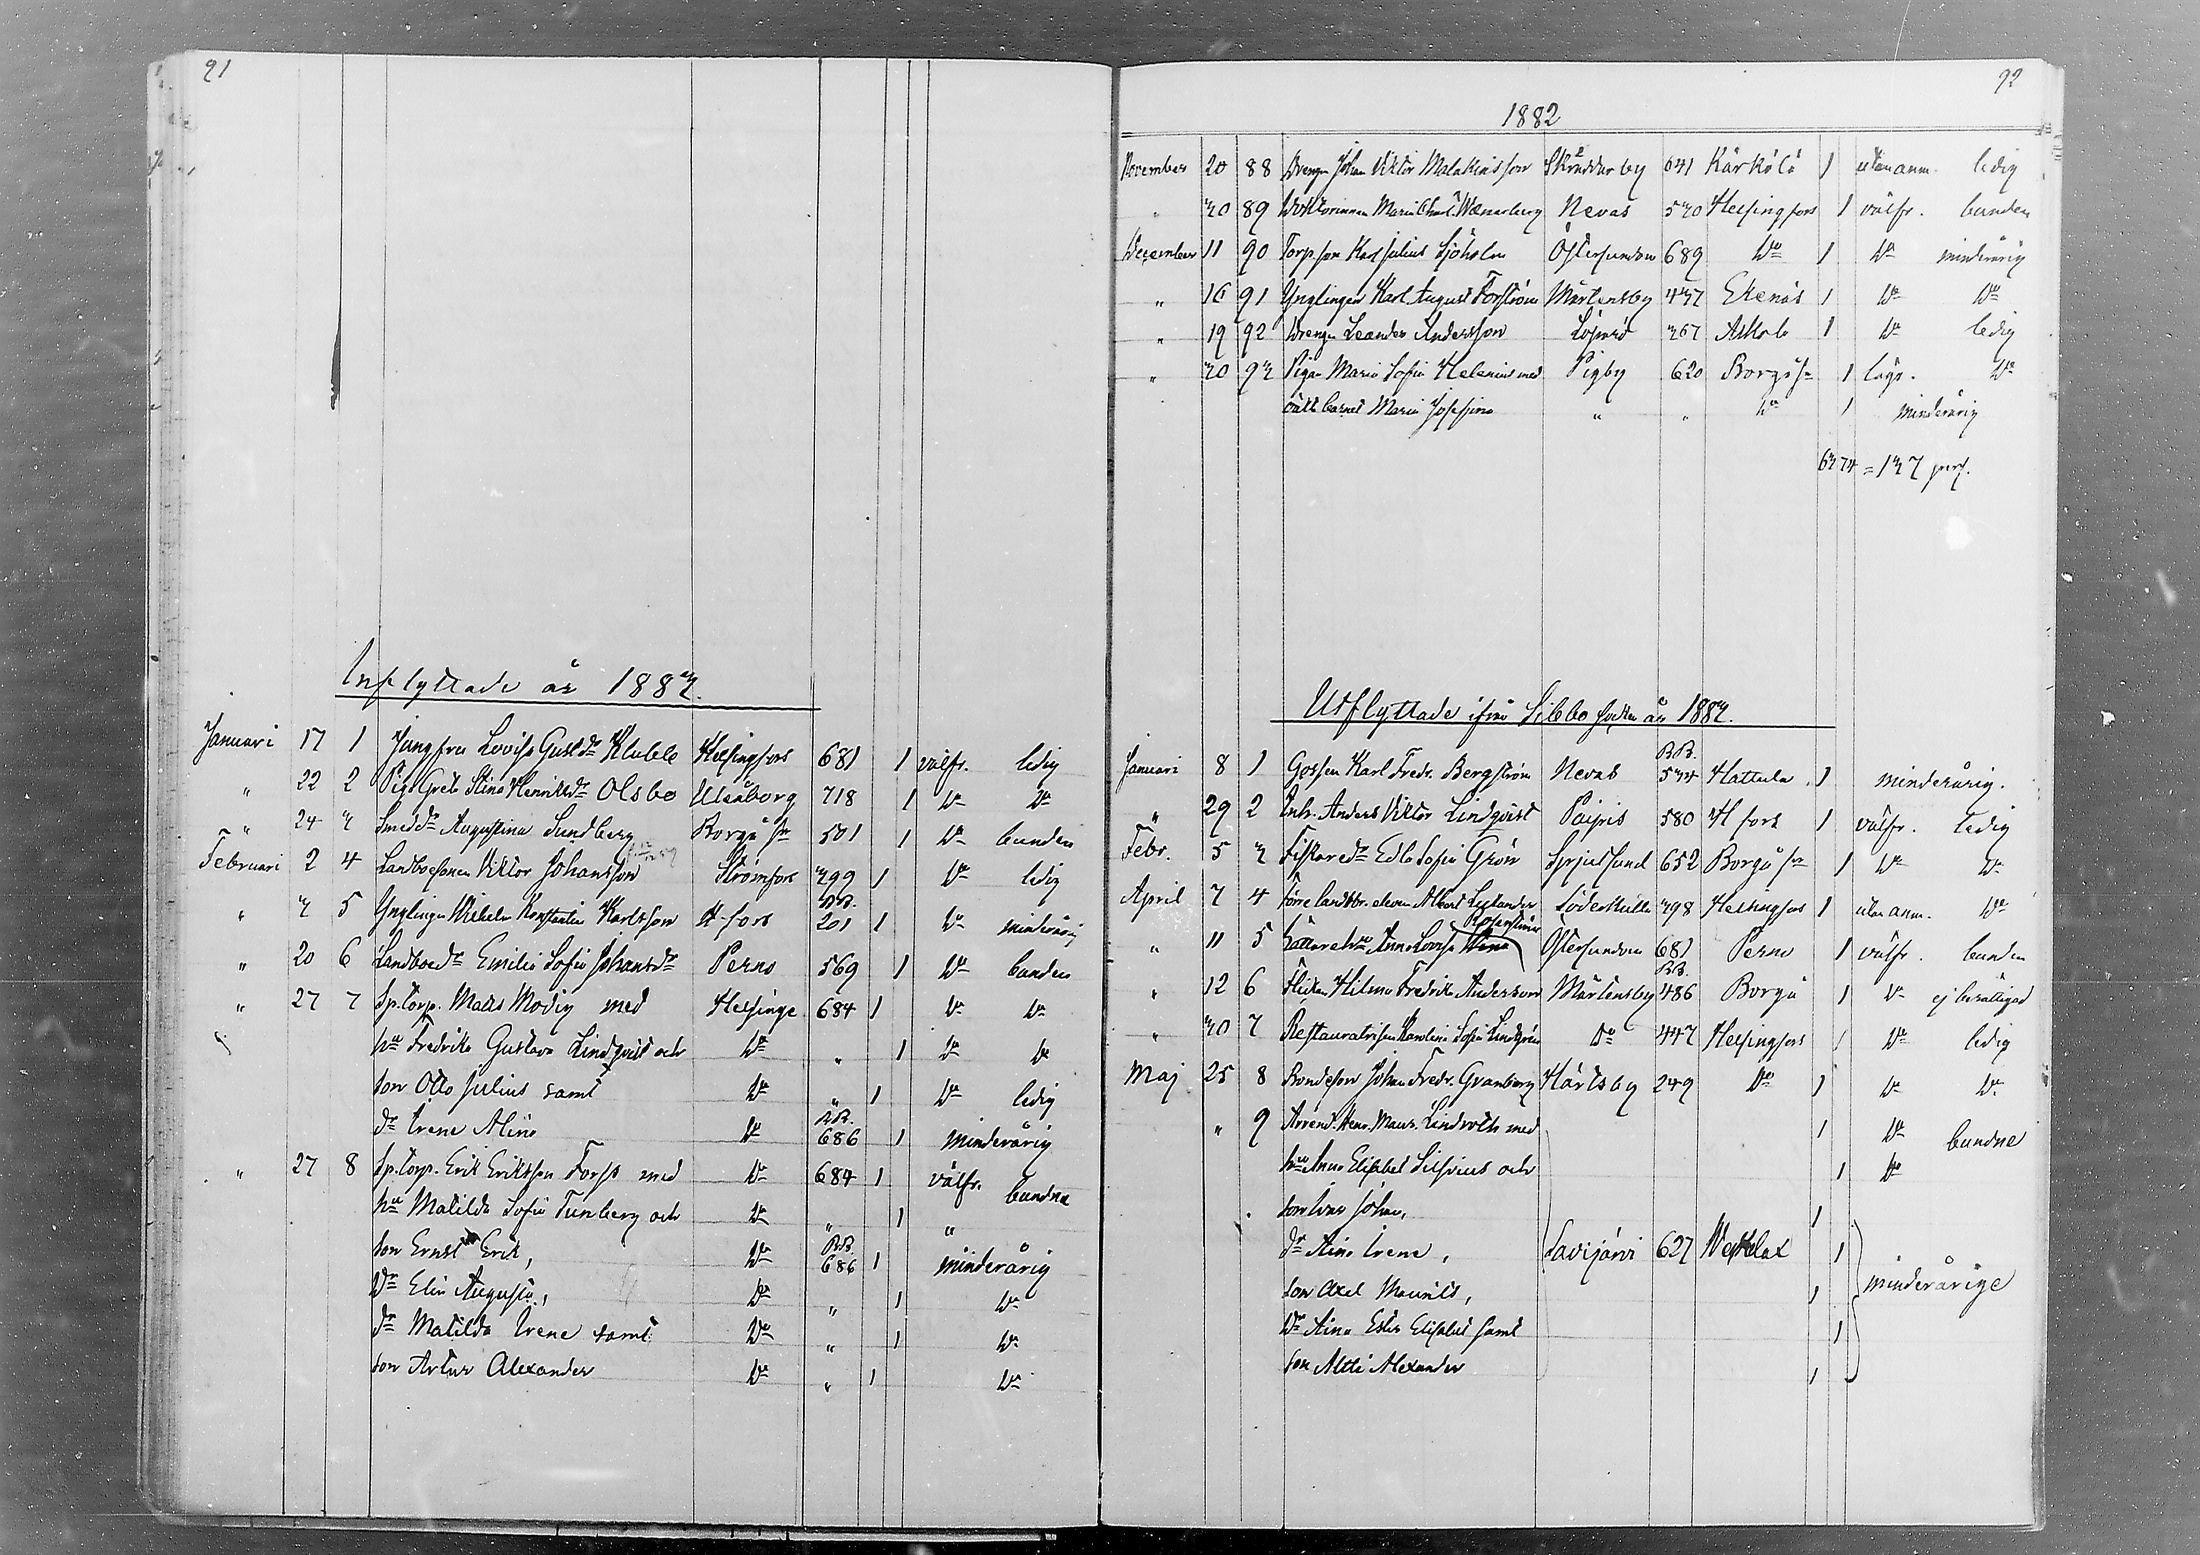 91
Inflyttade år 1883.
Januari 17 1 Jungfru Lovisa Gust.dr Klubb Helsingfors 681 1 välfr. ledig
" 22 2 Pig. Greta Stina Henriksdr Olsbo Uleåborg 718 1 Do Do
" 24 3 Smeddr Augustina Sundberg Borgå sn 501 1 Do bunden
Februari 2 4 Landbosonen Viktor Johansson Strömfors 399 1 Do ledig
" 3 5 Ynglingen Wilhelm Konstantin Karlsson H-fors B.B. 201 1 Do minderårig
" 20 6 Landboedr Emilia Sofia Johansdr Perno 569 1 Do bunden
" 27 7 Sp.torp. Matts Modig med Helsinge 684 1 Do Do
hu Fredrika Gustava Lindqvist och Do " 1 Do Do
son Otto Julius samt Do " 1 Do ledig
dr Irene Alina Do B.B. 686 1 minderårig
" 27 8 Sp.torp. Erik Eriksson Forss med Do 684 1 välfr. bundne
hu Matilda Sofia Tunberg och Do " 1 "
son Ernst Erik, Do B.B. 686 1 minderårig
Dr Elin Augusta, Do " 1 Do
dr Matilda Irene samt Do " 1 Do
son Artur Alexander Do " 1 Do
92
1882
November 20 88 Drengen Johan Viktor Malakias son Skräddarby 641 Kärkölä 1 utan anm. ledig
" 30 89 Doktorinnan Maria Charl. Wænerberg Nevas 530 Helsingfors 1 välfr. bunden
December 11 90 Torp.son Karl Julius Sjöholm Östersundom 689 Do 1 Do minderårig
" 16 91 Ynglingen Karl August Forström Mårtensby 437 Ekenäs 1 Do Do
" 19 92 Drengen Leander Andersson Löparö 367 Askola 1 Do ledig
" 30 93 Pigan Maria Sofia Helenius med Pigby 620 Borgå sn 1 lägr. Do
oäkta barnet Maria Josefina " " Do 1 minderårig
63 74 = 137 pers.
Utflyttade ifrån Sibbo socken år 1883.
Januari 8 1 Gossen Karl Fredr. Bergström Nevas B.B. 534 Hattula 1 minderårig.
" 29 2 Inh. Anders Viktor Lindqvist Paipis 580 H fors 1 välfr. ledig
Febr. 5 3 Fiskaredr Edla Sofia Grön Spjutsund 652 Borgå sn 1 Do Do
April 7 4 Förre landtbr. eleven Albert Lylander Söderkulla 398 Helsingfors 1 utan anm. Do
" 11 5 Anna Lovisa Rosenström Östersundom 681 Perno 1 välfr. bunden
" 12 6 Flickan Hilma Fredrika Andersson Mårtensby B.B. 486 Borgå 1 Do ej berättigad
" 30 7 Restauratrisen Karolina Sofia Lindgrén Do 447 Helsingfors 1 Do ledig
Maj 25 8 Bondeson Johan Fredr. Granberg Härtsby 249 Do 1 Do Do
" 9 Arrend. Henr. Maur. Lindroth med 1 Do bundne
hu Anna Elisabet Silfvius och 1 Do
son Ivar Johan, 1
dr Aina Irene, Savijärvi 627 Weckelax 1
son Axel Maurits, 1 minderårige
Dr Aina Ester Elisabet samt 1
son Atte Alexander 1